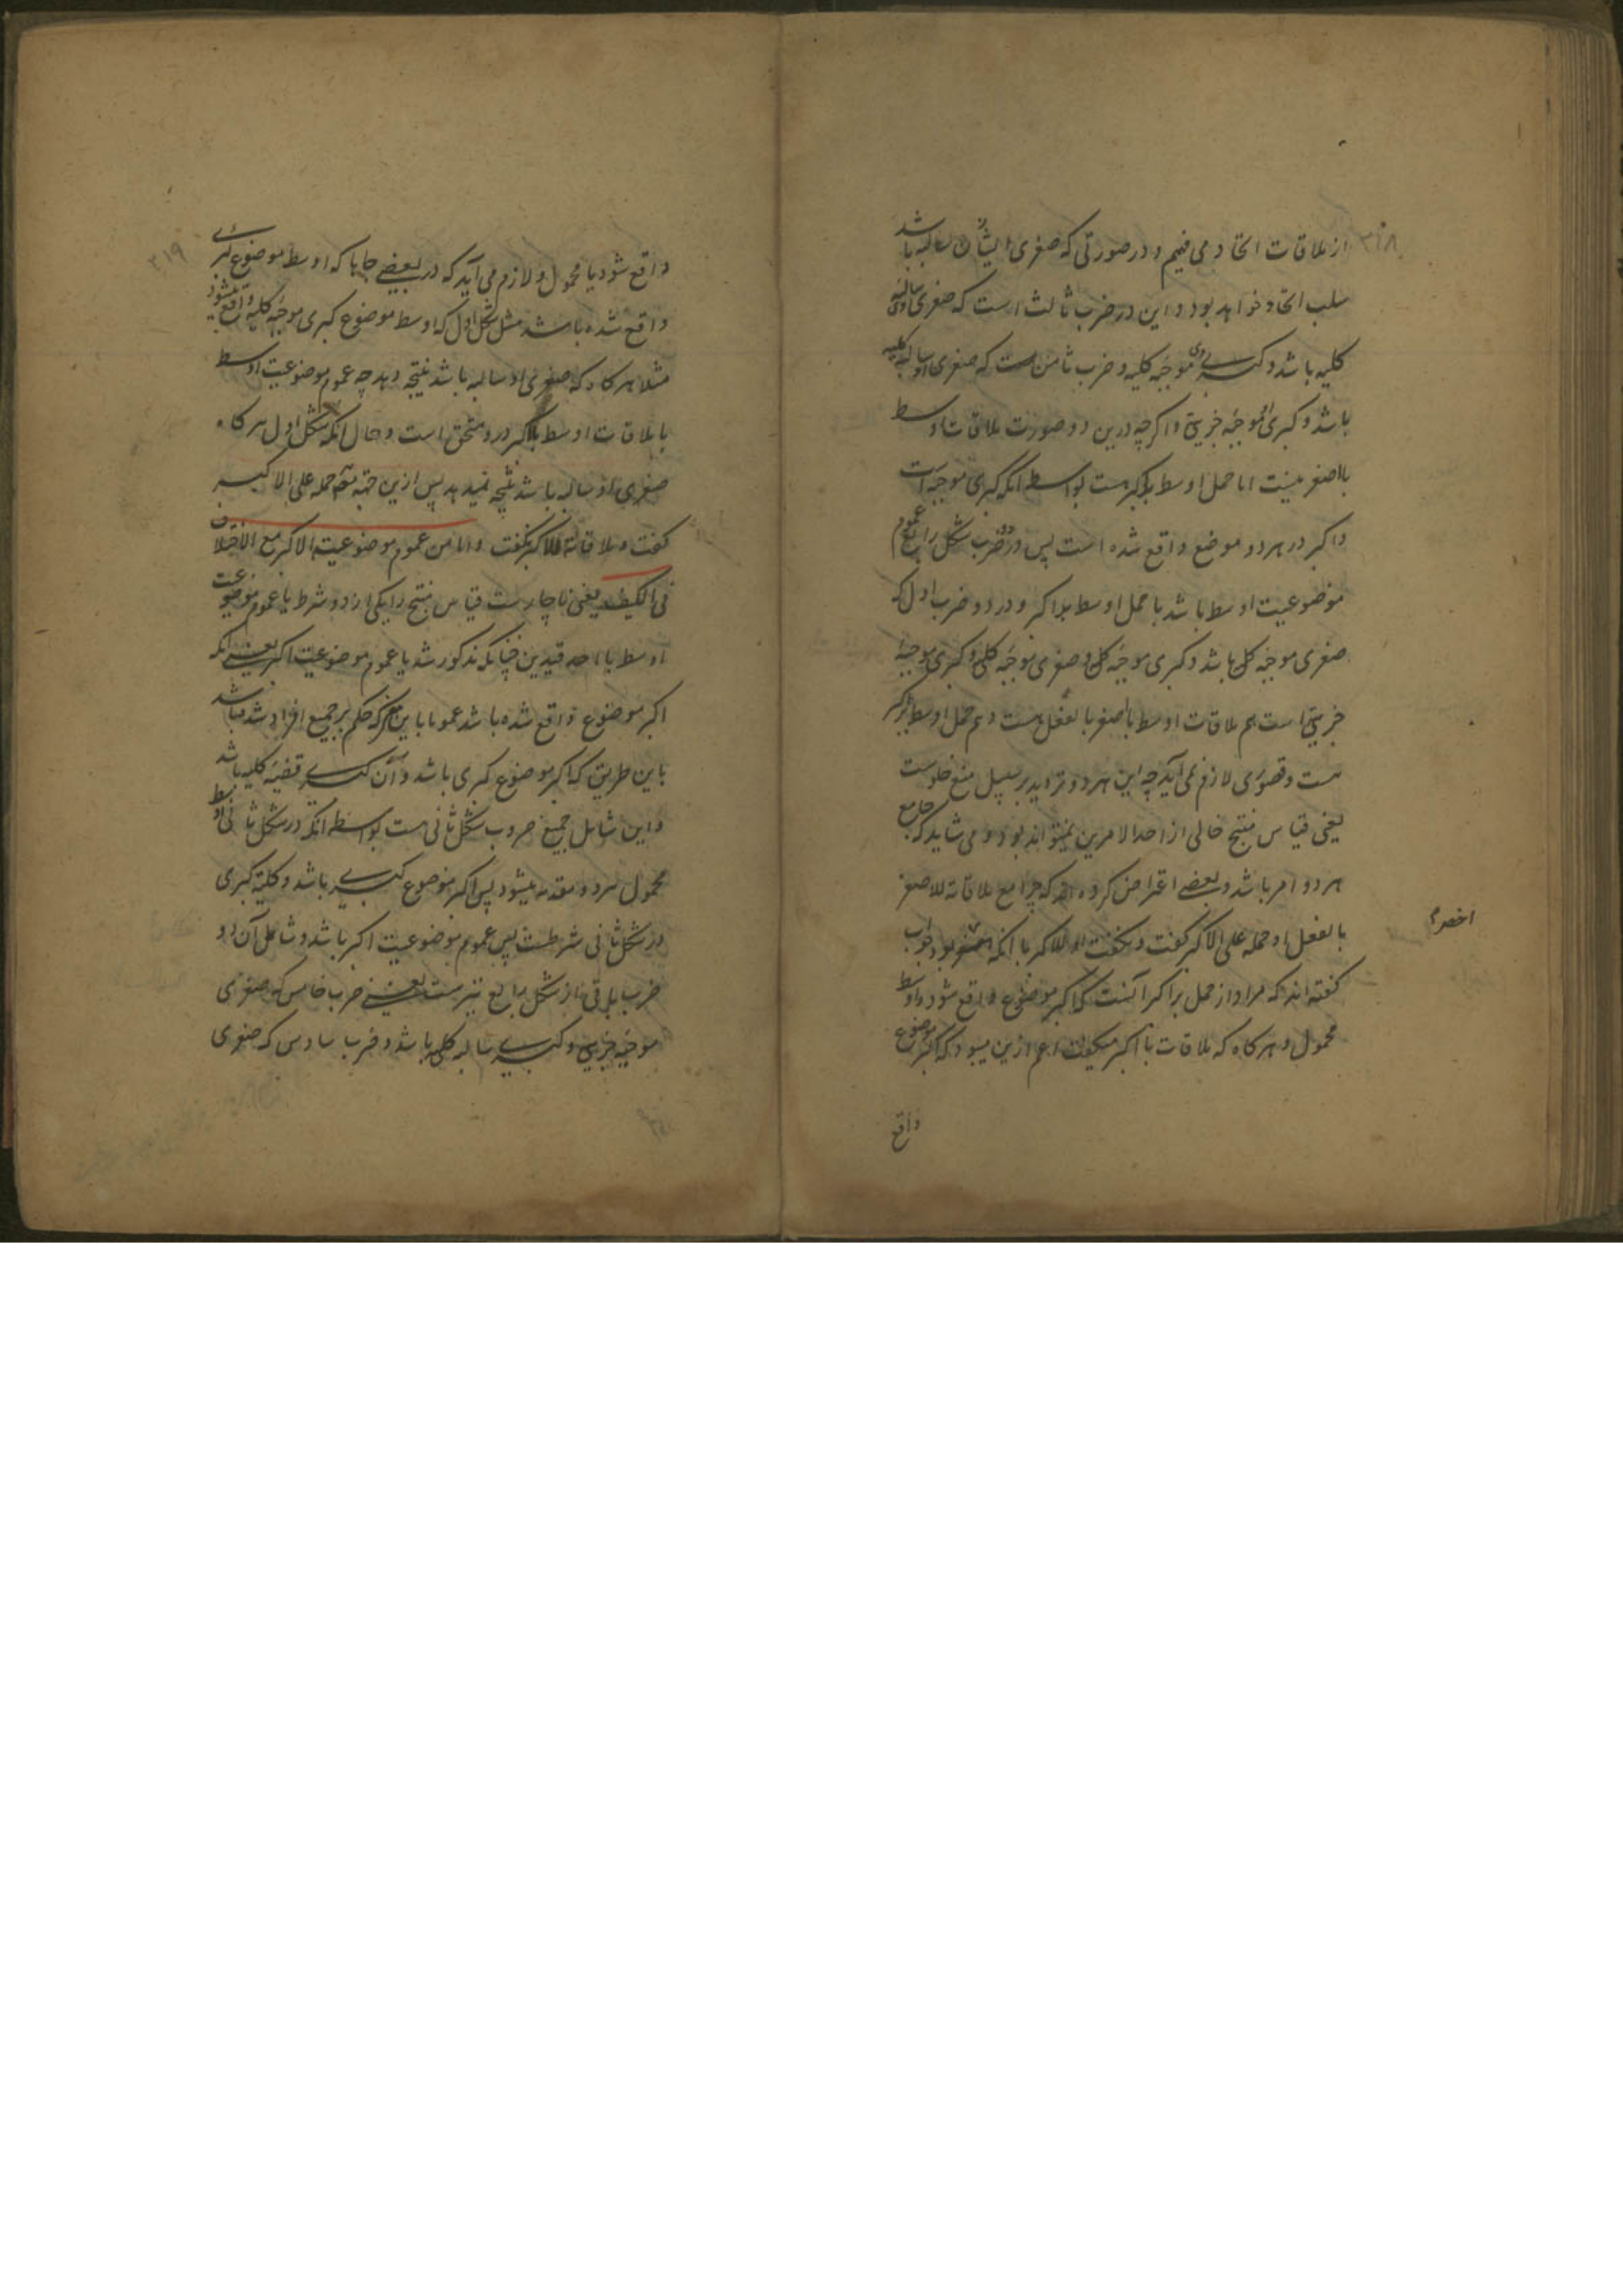 ۳۱۸
از ملاقات اتحاد می فهیم و در صورتی که صغری ایشان سالبه باشد
سلب اتحاد خواهد بود و این در ضرب ثالث است که صغری سالبه
کلیه باشد و کبری موجبه کلیه و ضرب ثامن است که صغری او سالبه کلیه
باشد و کبری موجبه جزییه و اگرچه درین دو صورت ملاقات اوسط
بااصغر نیست اما حمل اوسط بر اکبر هست بواسطه آنکه کبری موجبه است
و اکبر در هر دو موضع واقع شده است پس در دو ضرب شکل رابع عموم
موضوعیت اوسط باشد با حمل اوسط بر اکبر و در دو ضرب اول که
صغری موجبه کلیه باشد و کبری موجبه کلیه و صغری موجبه کلیه و کبری موجبه
جزییه است هم ملاقات اوسط با اصغر بالفعل هست و هم حمل اوسط بر اکبر
هست و قصوری لازم نمی آید چه این هر دو تردید بر سبیل منع خلوست
یعنی قیاس منتج خالی از احد الامرین نمیتواند بود و می شاید که جامع
هر دو امر باشد و بعضی اعتراض کرده اند که چرا مع ملاقاته للاصغر
بالفعل او حمله علی الاکبر گفت و نگفت او للاکبر با آنکه اخصر بود جواب
اخصر
گفته اند که مراد از حمل بر اکبر آنست که اکبر موضوع واقع شود و اوسط
محمول و هرگاه که ملاقات با اکبر میگفت اعم ازین میبود که اکبر موضوع
واقع
۳۱۹
واقع شود یا محمول و لازم می آید که در بعضی جاها که اوسط موضوع کبری
واقع شده باشد مثل شکل اول که اوسط موضوع کبری موجبه کلیه واقع میشود
مثلا هرگاه که صغری او سالبه باشد نتیجه دهد چه عموم موضوعیت اوسط
با ملاقات اوسط بلاکبر درو متحقق است و حال آنکه شکل اول هرگاه
صغری او سالبه باشد نتیجه نمیدهد پس ازین جهة حمله علی الاکبر
گفت و ملاقاته للاکبر نگفت و اما من عموم موضوعیة الاکبر مع الاختلاف
فی الکیف یعنی ناچارست قیاس منتج را یکی از دو شرط یا عموم موضوعیت
اوسط با احد قیدین چنانکه مذکور شد یا عموم موضوعیت اکبر یعنی آنکه
اکبر موضوع واقع شده باشد عموما باین معنی که حکم بر جمیع افراد شده باشد
باین طریق که اکبر موضوع کبری باشد و آن کبری قضیه کلیه باشد
و این شامل جمیع ضروب شکل ثانی هست بواسطه آنکه در شکل ثانی اوسط
محمول هر دو مقدمه میشود پس اکبر موضوع کبری باشد و کلیة کبری
در شکل ثانی شرطست پس عموم موضوعیت اکبر باشد و شامل آن دو
ضرب باقی از شکل رابع نیز هست یعنی ضرب خامس که صغری
موجبه جزییه و کبری سالبه کلیه باشد و ضرب سادس که صغری